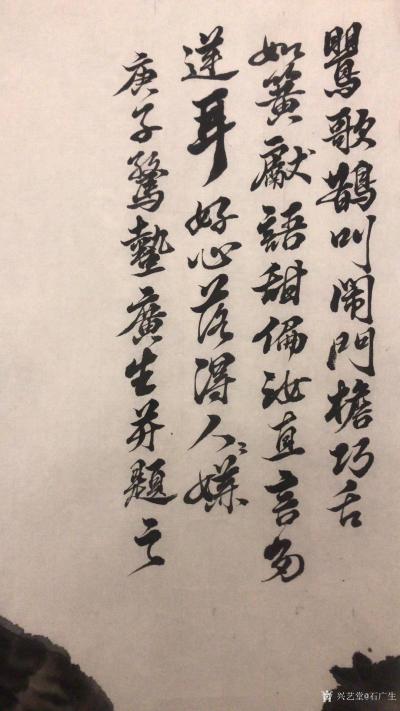 鸎歌鵲叫鬧門檐巧舌
如簧獻語甜偏汝直言多
逆耳好心落得人々嫌
庚子驚蟄廣生并題之
兴艺堂@石广生